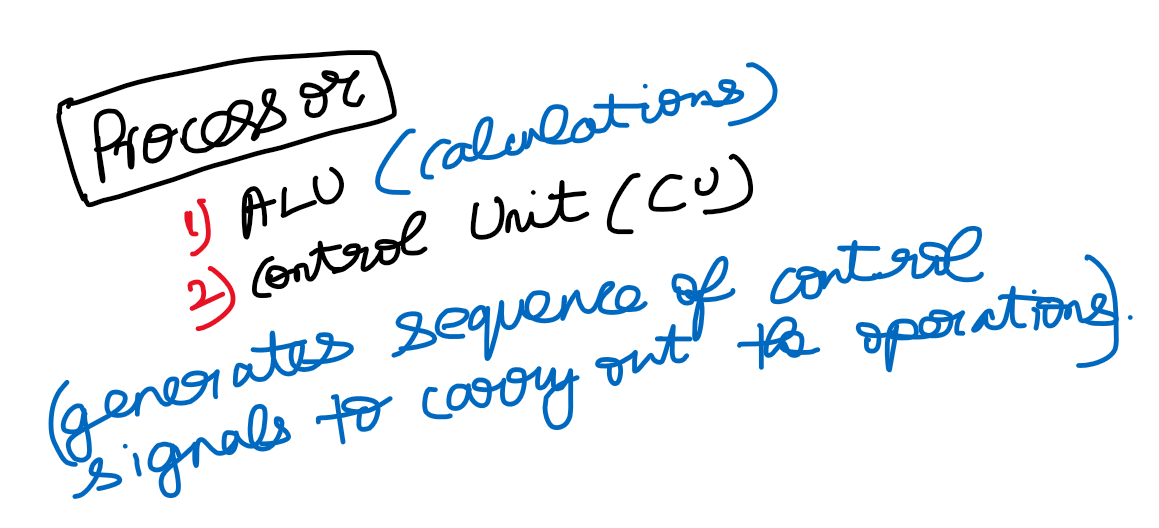 Processor
1) ALU (calculations)
2) Control Unit (CU)
(generates sequence of control
signals to carry out the operations).